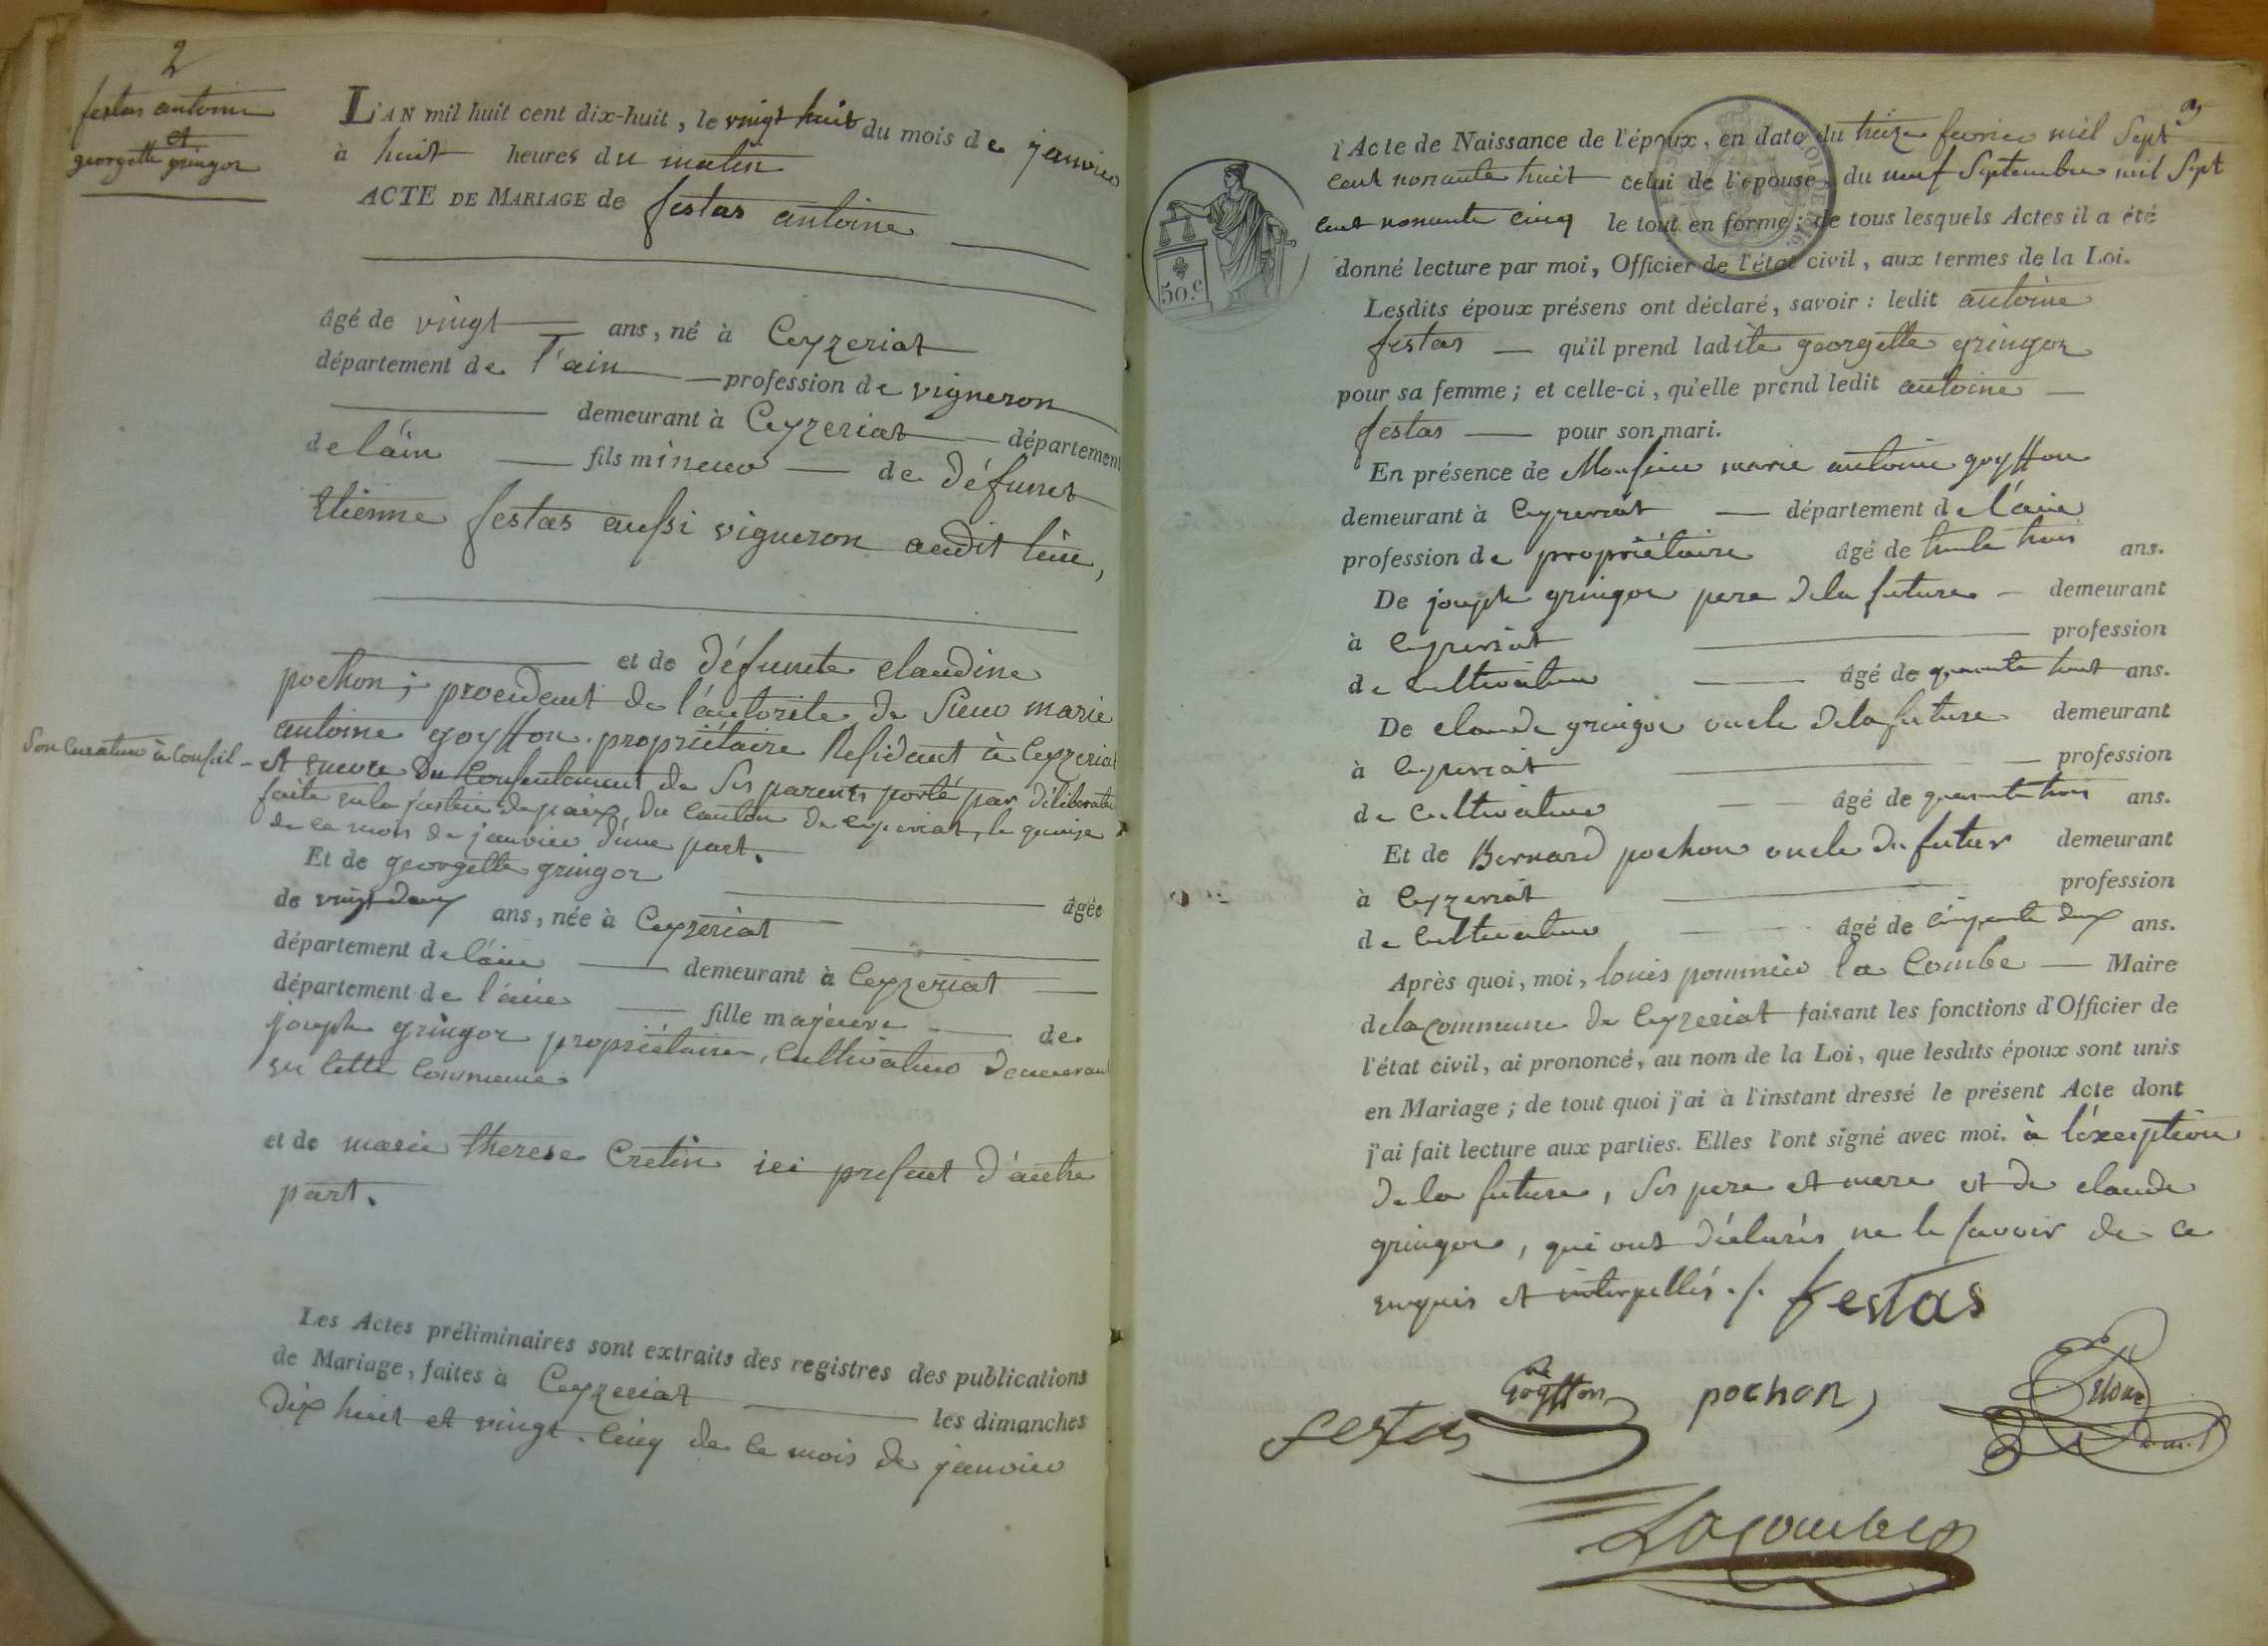 2
festas antoine
et
georgette gringoz
L'AN mil huit cent dix-huit, le vingt huit du mois de janvier
à huit heures du matin
ACTE DE MARIAGE de festas antoine
âgé de vingt ans, né à Ceyzeriat
département de l'ain profession de vigneron
demeurant à Ceyzeriat département
de l'ain fils mineur de défunct
Etienne festas aussi vigneron audit lieu,
et de défuncte claudine
pochon; procédant de l'autorité de Sieur marie
antoine goyffon propriétaire Résidant à Ceyzeriat
son curateur à conseil - et encore du consentement de ses parents porté par délibération
faite en la justice de paix, du canton de ceyzeriat, le quinze
de ce mois de janvier d'une part.
Et de georgette gringoz
âgée
de vingt deux ans, née à Ceyzeriat
département de l'ain demeurant à Ceyzeriat
département de l'ain fille majeure de
joseph gringoz propriétaire, cultivateur demeurant
en cette commune
et de marie therese Cretin ici présent d'autre
part.
Les Actes préliminaires sont extraits des registres des publications
de Mariage, faites à Ceyzeriat les dimanches
dix huit et vingt cinq de ce mois de janvier
l'Acte de Naissance de l'époux, en date du treize fevrier mil Sept
cent nonante huit celui de l'épouse du neuf Septembre mil Sept
cent nonante cinq le tout en forme; de tous lesquels Actes il a été
50.c
donné lecture par moi, Officier de l'état civil, aux termes de la Loi.
Lesdits époux présens ont déclaré, savoir: ledit antoine
festas qu'il prend ladite georgette gringoz
pour sa femme; et celle-ci, qu'elle prend ledit antoine
festas pour son mari.
En présence de Monsieur marie antoine goyffon
demeurant à Ceyzeriat département de l'ain
profession de propriétaire âgé de trente trois ans.
De joseph gringoz pere de la future demeurant
à Ceyzeriat profession
de cultivateur âgé de quarante huit ans.
De claude gringoz oncle de la future demeurant
à Ceyzeriat profession
de cultivateur âgé de quarante trois ans.
Et de Bernard pochon oncle du futur demeurant
à Ceyzeriat profession
de cultivateur âgé de cinquante deux ans.
Après quoi, moi, louis pommier la Combe Maire
de la commune de Ceyzeriat faisant les fonctions d'Officier de
l'état civil, ai prononcé, au nom de la Loi, que lesdits époux sont unis
en Mariage; de tout quoi j'ai à l'instant dressé le présent Acte dont
j'ai fait lecture aux parties. Elles l'ont signé avec moi. à l'exception
de la future, ses pere et mere et de claude
gringoz, qui ont déclarés ne le savoir de ce
enquis et interpellés ./. festas
festas Goyffon pochon
Lacombe